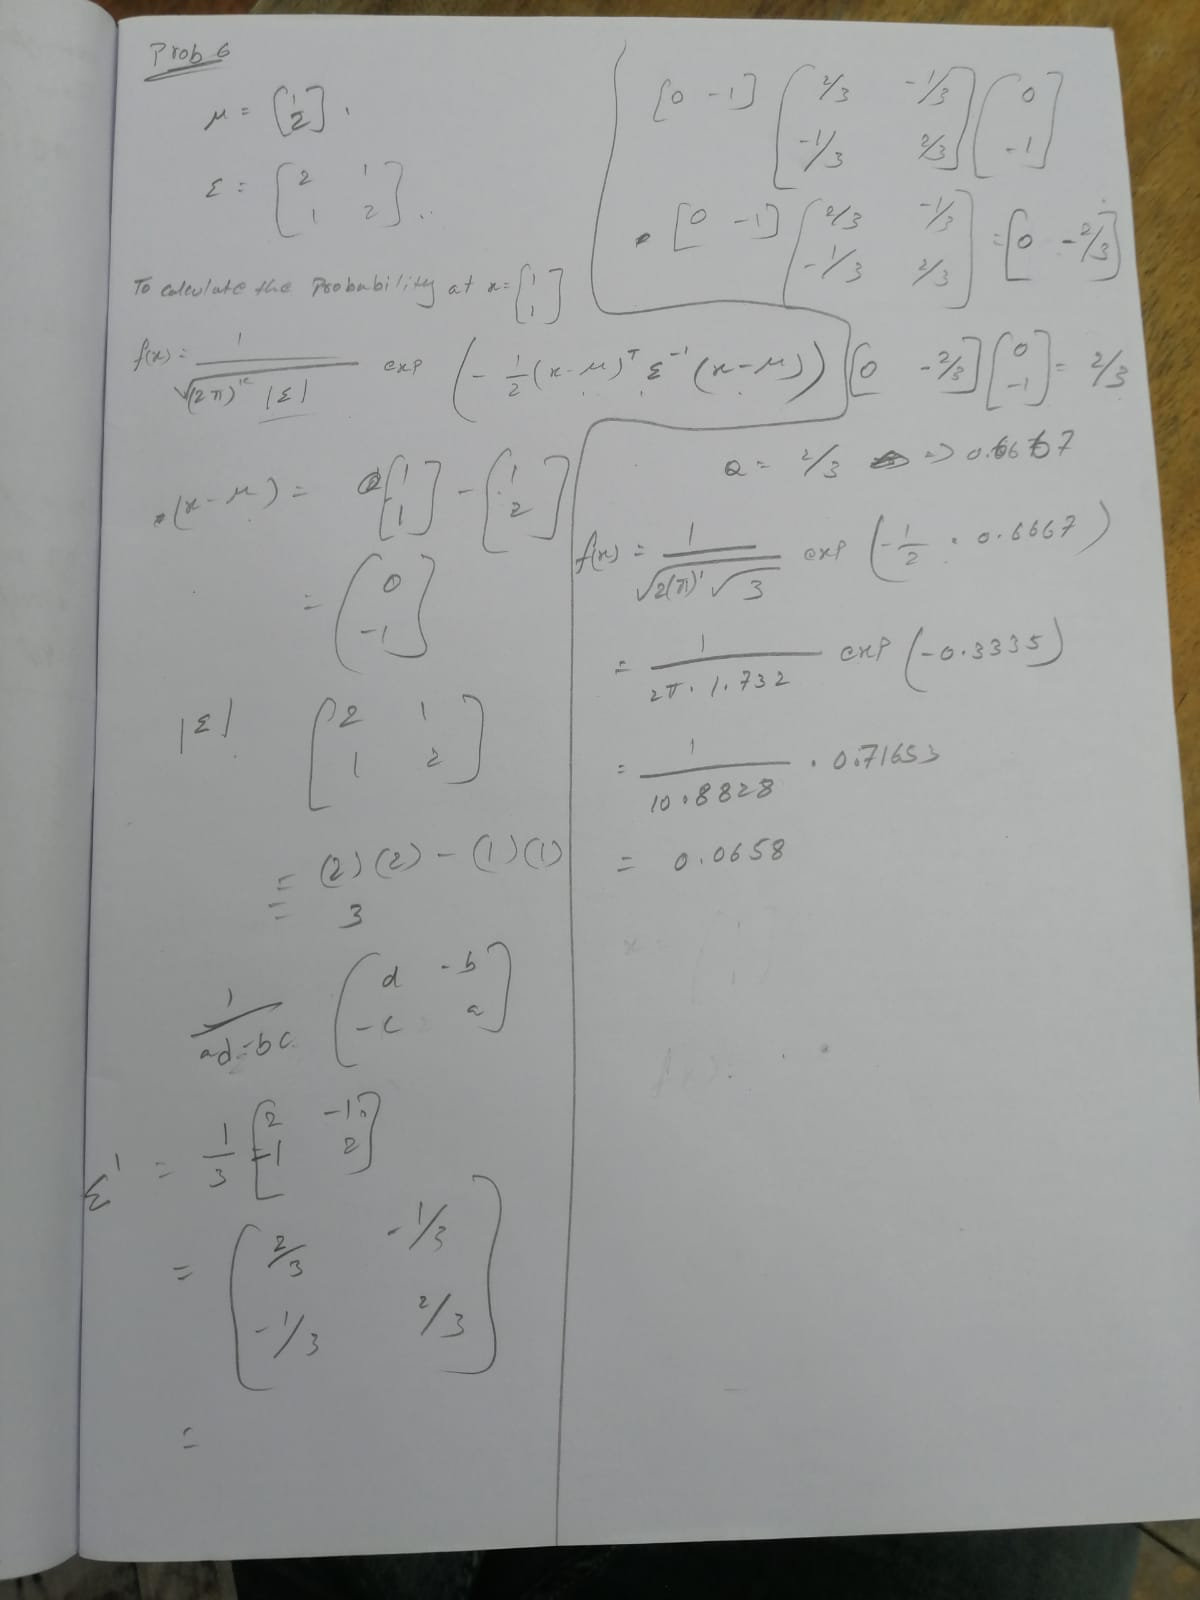 Prob 6
μ = [1 2].
Σ = [2 1
1 2]..
To calculate the Probability at x = [1 1]
f(x) = 1 / √(2π)ᵏ |Σ| exp (- 1/2 (x-μ)ᵀ Σ⁻¹ (x-μ))
(x-μ) = [1 1] - [1 2]
= [0 -1]
|Σ| [2 1
1 2]
= (2)(2) - (1)(1)
= 3
1 / ad-bc [d -b
-c a]
Σ⁻¹ = 1/3 [2 -1
-1 2]
= [2/3 -1/3
-1/3 2/3]
=
[0 -1] [2/3 -1/3
-1/3 2/3] [0 -1]
[0 -1] [2/3 -1/3
-1/3 2/3] = [0 -2/3]
[0 -2/3] [0 -1] = 2/3
Q = 2/3 => 0.6667
f(x) = 1 / √2(π)' √3 exp (-1/2 · 0.6667)
= 1 / 2π · 1.732 exp (-0.3335)
= 1 / 10.8828 · 0.71653
= 0.0658